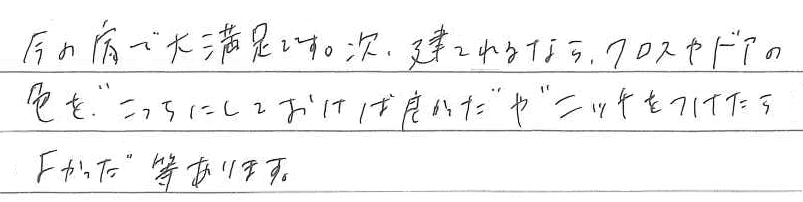 今の房で大満足です。次、建てれるなら、クロスやドアの
色を"こっちにしておけば良かった"や"ニッチをつけたら
よかった"等あります。